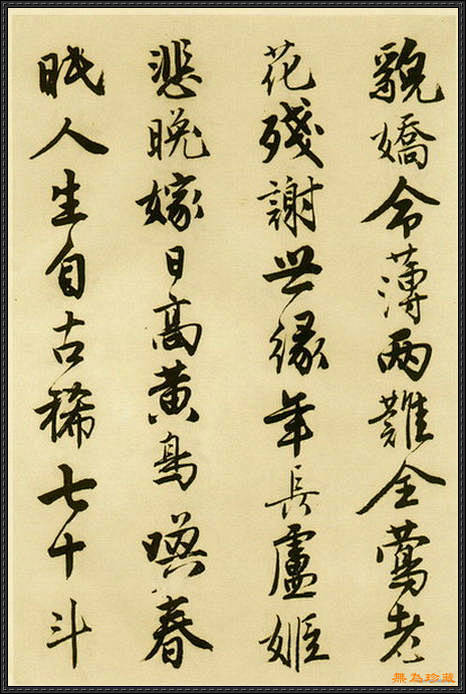 貌嬌命薄两難全鶯老
花殘謝世緣年長盧姬
悲晚嫁日高黄鳥喚春
眠人生自古稀七十斗
無為珍藏